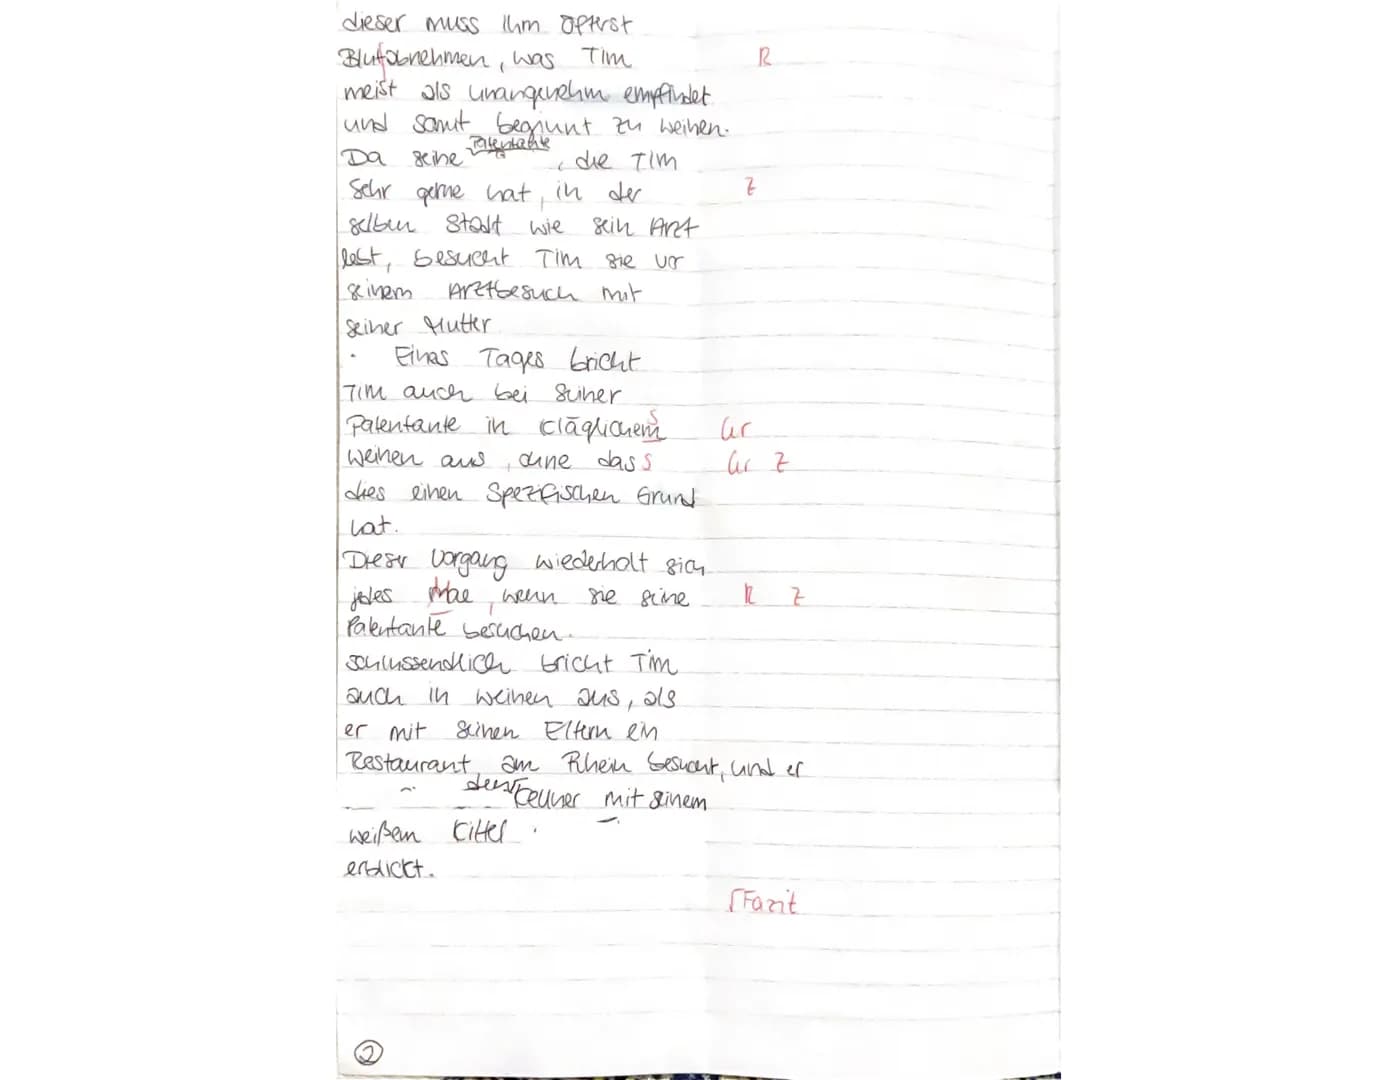 dieser muss Ihm öfterst
Blutabnehmen, was Tim R
meist als unangenehm empfindet
und somit beginnt zu weinen.
Patentante
Da seine , die Tim
Sehr gerne hat, in der Z
selben Stadt wie sein Arzt
lebt, besucht Tim sie vor
seinem Arztbesuch mit
seiner Mutter
. Eines Tages bricht
Tim auch bei seiner
Patentante in kläglichem s Gr
weinen aus, ohne dass Gr Z
dies einen Spezifischen Grund
hat.
Dieser Vorgang wiederholt sich
jedes Mal, wenn sie seine R Z
Patentante besuchen.
schlussendlich bricht Tim
auch in weinen aus, als
er mit seinen Eltern ein
Restaurant am Rhein besucht, und er
den Kellner mit seinem
weißem Kittel.
erblickt.
Fazit
2